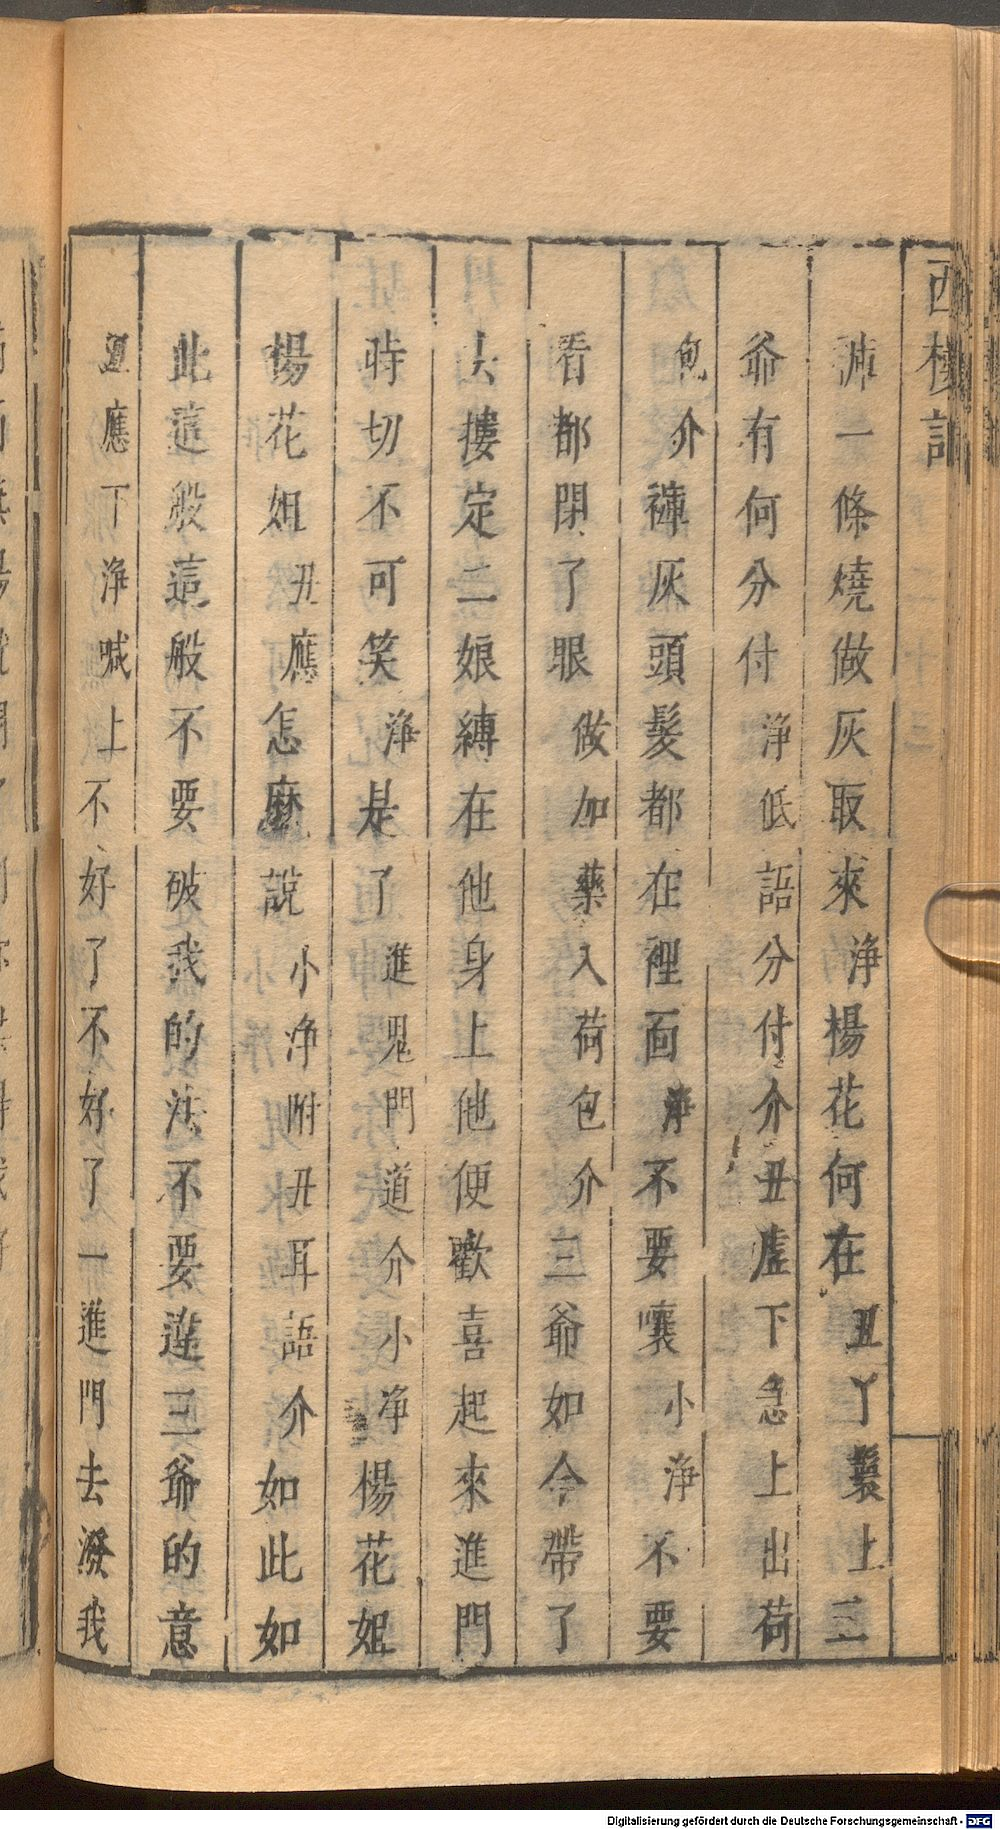 西樓記
一條燒做灰取來淨楊花何在丑丫鬟上三
爺有何分付淨低語分付介丑虛下急上出荷
包介褲灰頭髮都在裡面淨不要嚷小淨不要
看都閉了眼做加藥入荷包介三爺如今帶了
去摟定二娘縛在他身上他便歡喜起來進門
時切不可笑淨是了進鬼門道介小淨楊花姐
楊花姐丑應怎麽說小淨附丑耳語介如此如
此這般這般不要破我的法不要違三爺的意
丑應下淨喊上不好了不好了一進門去潑我
Digitalisierung gefördert durch die Deutsche Forschungsgemeinschaft - DFG